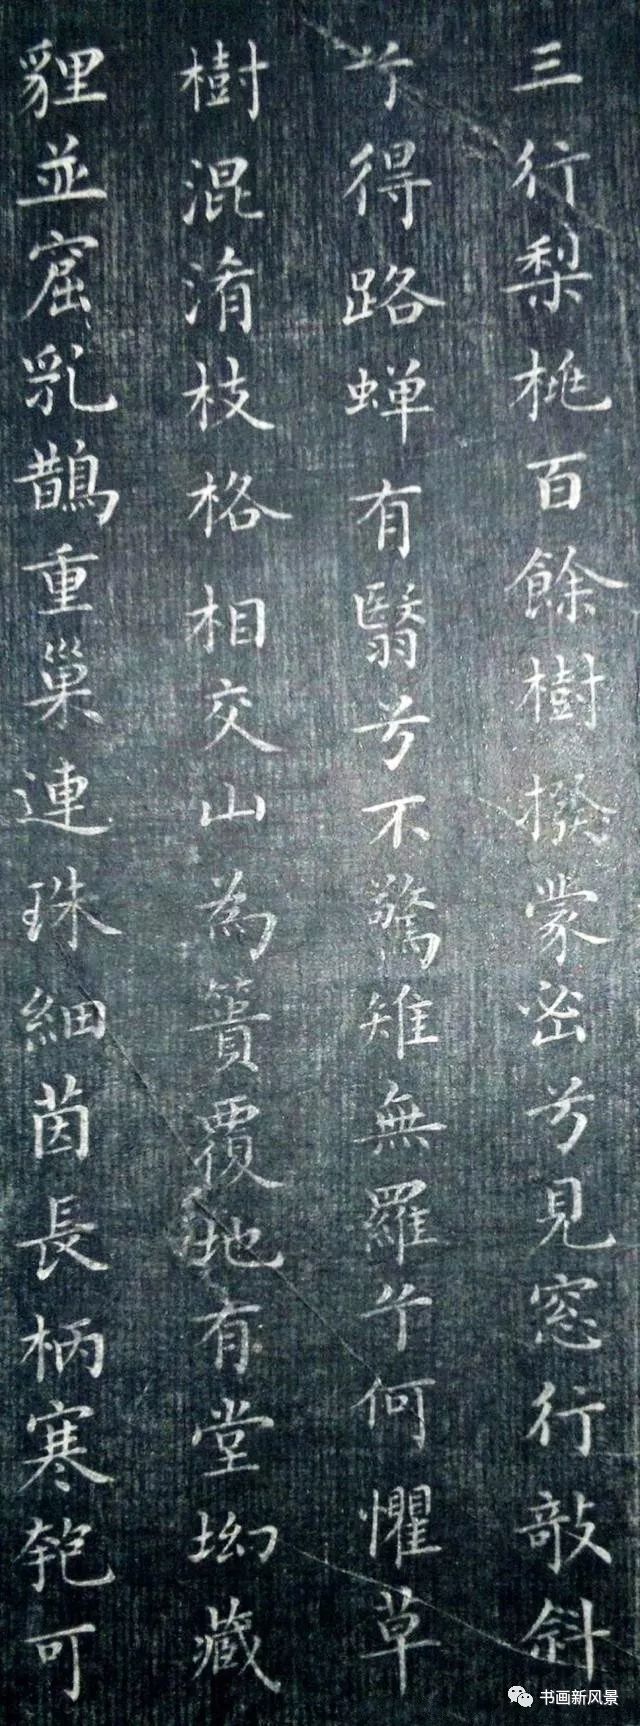 三行梨桃百餘樹撥蒙密兮見窓行敧斜
兮得路蟬有翳兮不驚雉無羅兮何懼草
樹混淆枝格相交山為簣覆地有堂坳藏
貍並窟乳鵲重巢連珠細茵長柄寒匏可
书画新风景